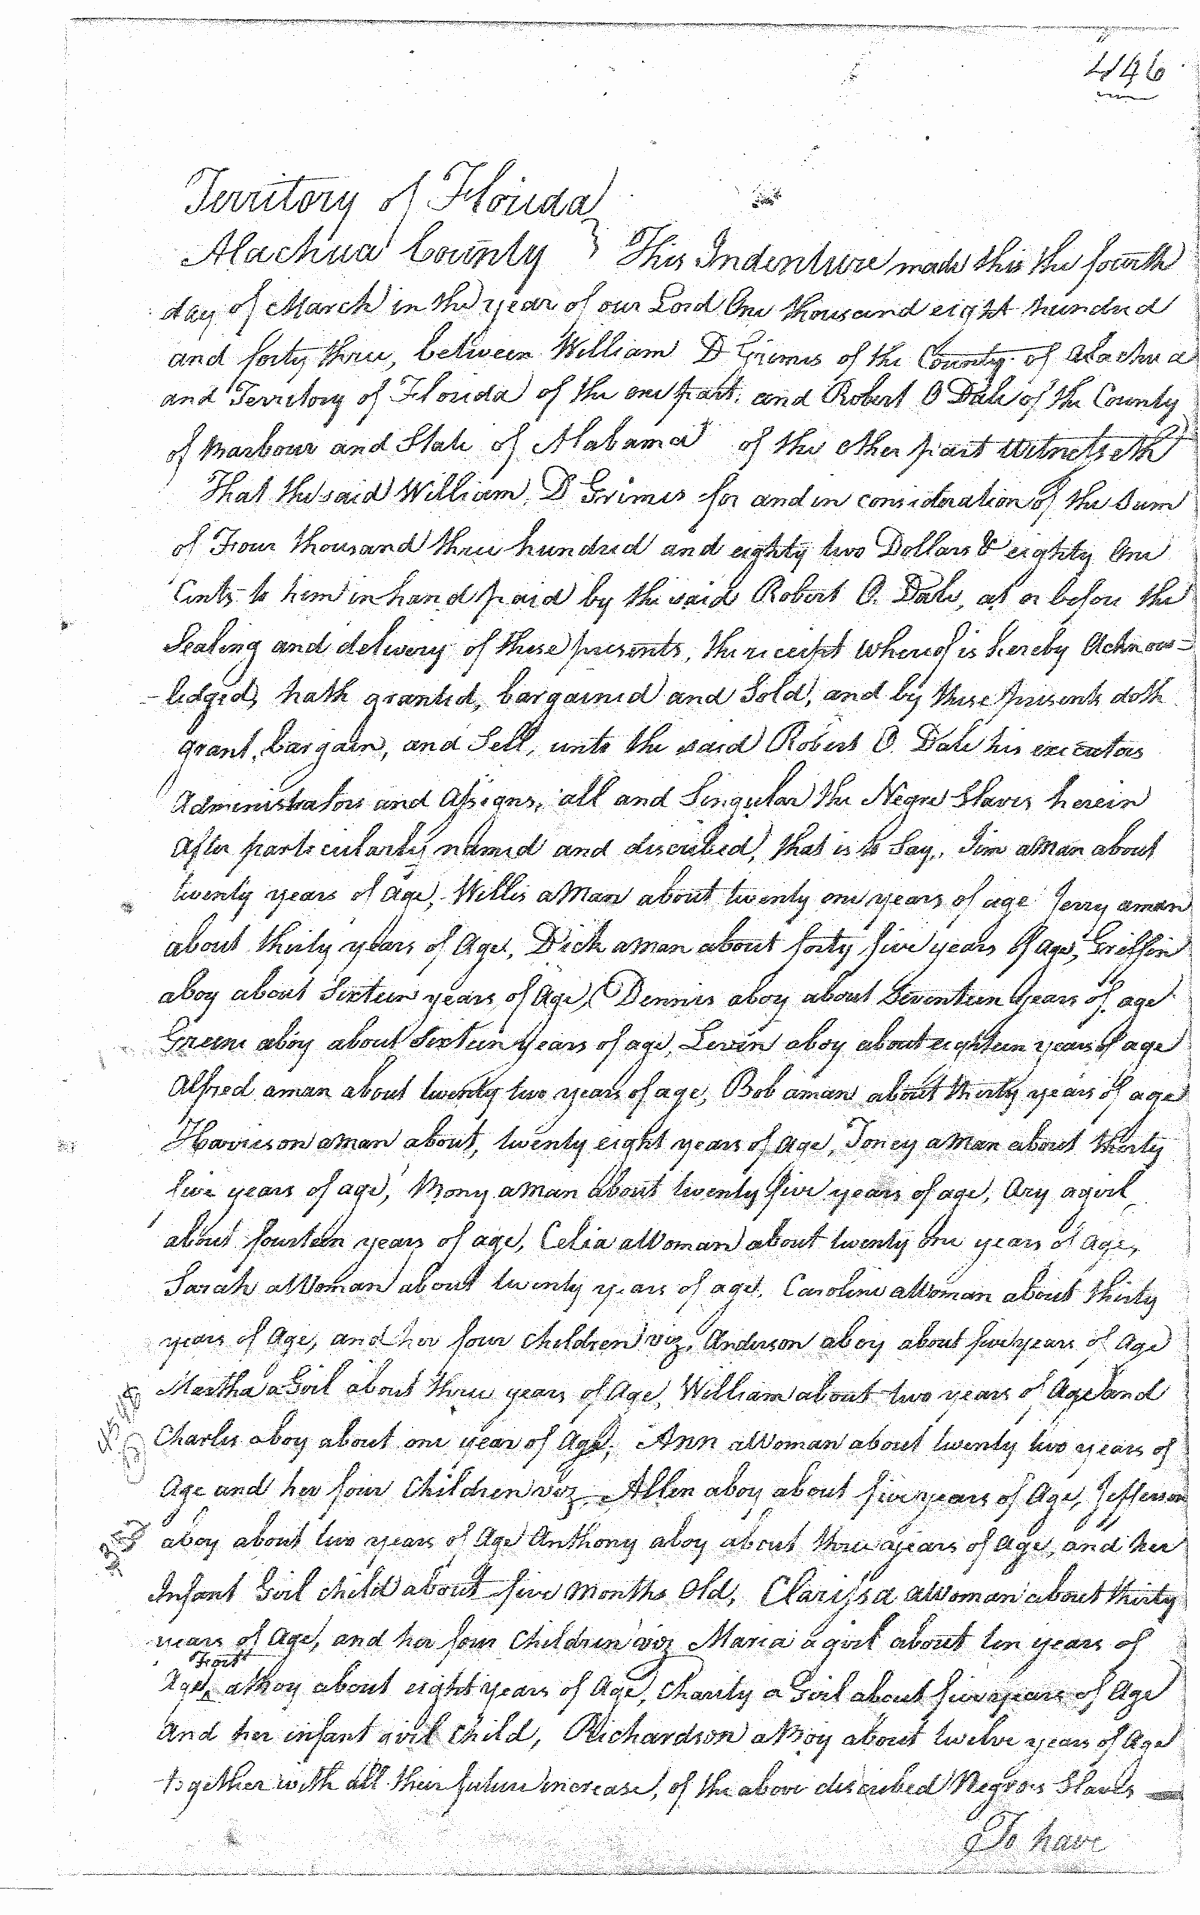 446
Territory of Florida
Alachua County } This Indenture made this the fourth
day of March in the year of our Lord One thousand eight hundred
and forty three, between William D Grimes of the County of Alachua
and Territory of Florida of the one part, and Robert O Dale of the County
of Barbour and State of Alabama of the other part Witnesseth
That the said William D Grimes for and in consideration of the Sum
of Four thousand three hundred and eighty two Dollars & eighty One
Cents to him in hand paid by the said Robert O. Dale, at or before the
Sealing and delivery of these presents, the receipt whereof is hereby Acknow=
-ledged, hath granted, bargained and Sold, and by these presents doth
grant, bargain, and Sell, unto the said Robert O. Dale his executors
Administrators and Assigns, all and Singular the Negro Slaves herein
After particularly named and discribed, that is to Say, Jim a Man about
twenty years of Age, Willis a Man about twenty one years of age Jerry a man
about thirty years of Age, Dick a man about forty five years of Age, Griffin
a boy about Sixteen years of Age, Dennis a boy about Seventeen years of age
Green a boy about Sixteen years of age, Levin a boy about eighteen years of age
Alfred a man about twenty two years of age, Bob a man about thirty years of age
Harrison a man about, twenty eight years of Age, Toney a Man about thirty
five years of age, Mony a man about twenty five years of age, Ary a girl
about fourteen years of age, Celia a Woman about twenty one years of Age,
Sarah a Woman about twenty years of age, Caroline a Woman about thirty
years of Age, and her four children viz, Anderson a boy about five years of Age
Martha a Girl about three years of Age, William about two years of Age and
Charles a boy about one year of Age, Ann a Woman about twenty two years of
Age and her four Children viz Allen a boy about five years of Age, Jefferson
a boy about two years of Age Anthony a boy about three years of Age, and her
Infant Girl child about five Months Old, Clarissa a Woman about thirty
years of Age, and her four Children viz Maria a girl about ten years of
Age, a Boy about eight years of Age, Charity a Girl about five years of Age
And her infant girl Child, Richardson a Boy about twelve years of Age
together with all their future increase, of the above discribed Negroes Slaves
To have